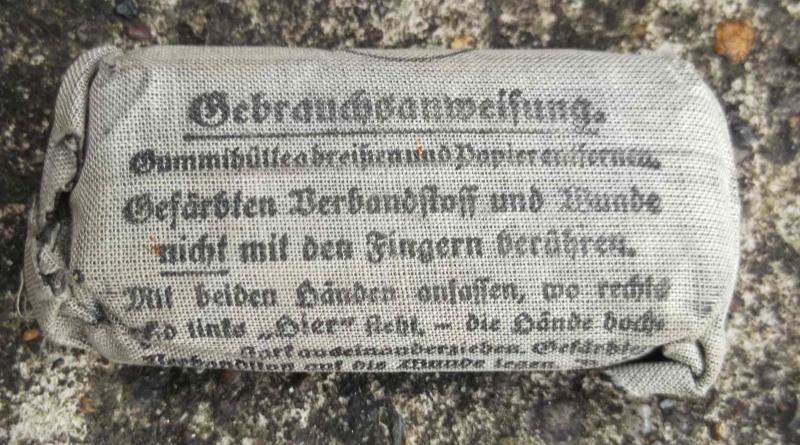 Gebrauchsanweisung.
Gummihülle abreißen und Papier entfernen.
Gefärbten Verbandstoff und Wunde
nicht mit den Fingern berühren.
Mit beiden Händen anfassen, wo rechts
links „Hier“ steht, – die Hände hoch-
stark auseinanderziehen. Gefärbte
auf die Wunde